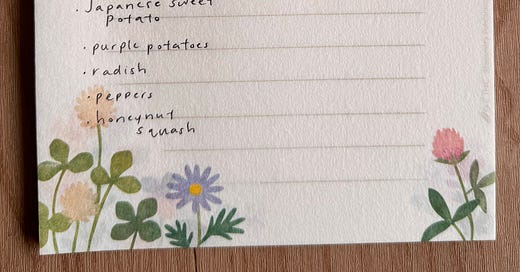 · Japanese sweet
potato
· purple potatoes
· radish
· peppers
· honeynut
squash